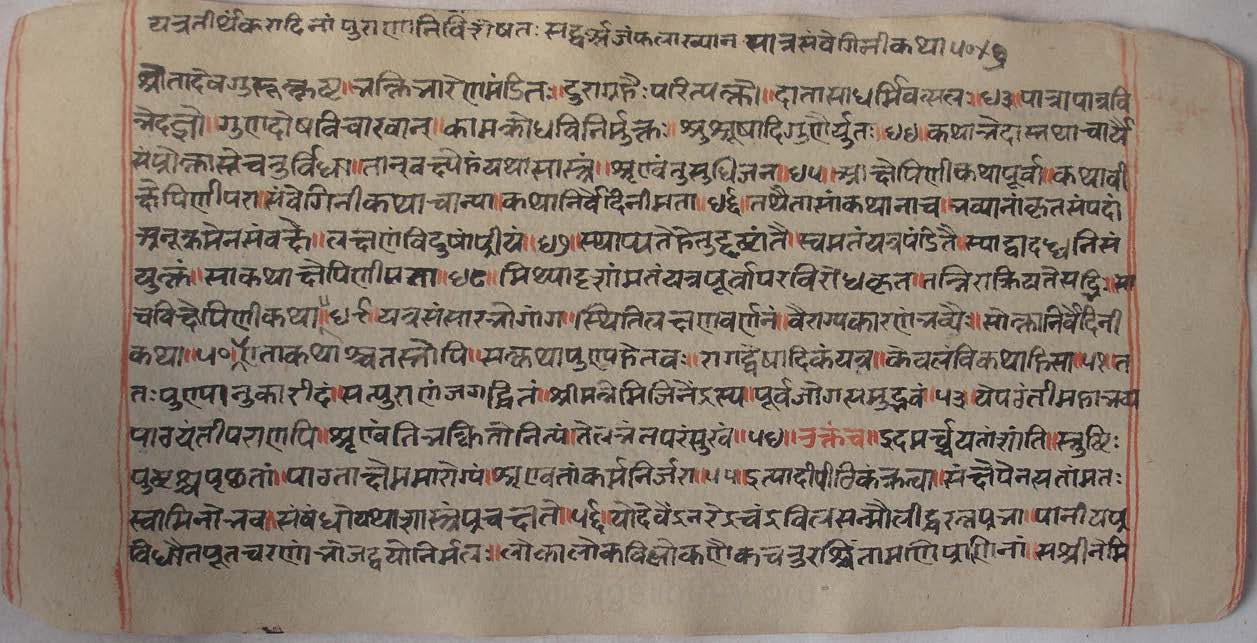 यत्रतीर्थंकरादिनां पुराणानि विशेषतः सद्धर्मजं फलाख्यान सात्र संवेगिनी कथा ५०
श्रोता देवगुरू॥भक्तिभारेणमंडितः॥दुराग्रहैः परित्यक्तो॥दातासाधर्मिवत्सलः॥४३ पात्रापात्रवि
भेदज्ञो॥गुणदोषविचारवान्॥कामक्रोधविनिर्मुक्तः॥शुश्रूषादिगुणैर्युतः॥४४॥कथाभेदास्तथाचार्यै
संप्रोक्तास्तेचतुर्विधा॥तान्वक्ष्येहंयथासास्त्रं॥शृण्वंतुसुधिजना॥४५॥आक्षेपिणीकथापूर्वा॥कथावी
क्षेपिणीपरा॥संवेगिनीकथाचान्या॥कथानिर्वेदिनीमता॥४६॥तथैतासांकथानाच॥भव्यानांकृतसंपदां
अनुक्रमेनसंवक्षे॥लक्षणंविदुषांप्रीयं॥४७॥स्थाप्यतेहेतुदृष्टांतै॥स्वमतंयत्रपंडितै॥स्याद्वादध्वनिसं
युक्तं॥साकथाक्षेपिणीमता॥४८॥मिथ्यादृशांमतंयत्र॥पूर्वापरविरोधकृत॥तन्निराक्रियतेसद्भिः॥सा
चविक्षेपिणीकथा॥४९ यत्रसंसारभोगांग॥स्थितिलक्षणवर्णनं॥वैराग्यकारणंभव्यैः॥सोक्तानिर्वेदिनी
कथा॥५०॥एताकथाश्चतस्त्रोपि॥सत्कथापुण्यहेतवः॥रागद्वेषादिकंयत्र॥केवलंविकथाहिसा॥५२ त
तःपुण्यानुकारीदं॥सत्पुराणंजगद्धितं॥श्रीमन्नेमिजिनेंऽस्य॥पूर्वजोगसमुद्भवं॥५३॥येपठंतीमहाभव्या
पाठयंतीपराण्यपि॥शृण्वंतिभक्तितोनित्यं॥तेलभंतेपरंसुखं॥५४॥उक्तंच॥इदमर्च्चयतांशांति॥स्तुष्टिः
पुष्टिश्चपृच्छतां॥पाठताक्षेममारोग्यं॥शृण्वतांकर्मनिर्जरा॥५५॥इत्यादीपीठिकंकृत्वा॥संक्षेपेनसतांमतः
स्वामिनोभव॥संबंधोयथाशास्त्रंप्रचक्षते॥५६॥योदेवें
विधौतपूतचरणांभोजद्वयोनिर्मलः॥लोकालोकविलोकणैकचतुरश्चिंतामणिप्राणिनां॥सश्रीनेमि